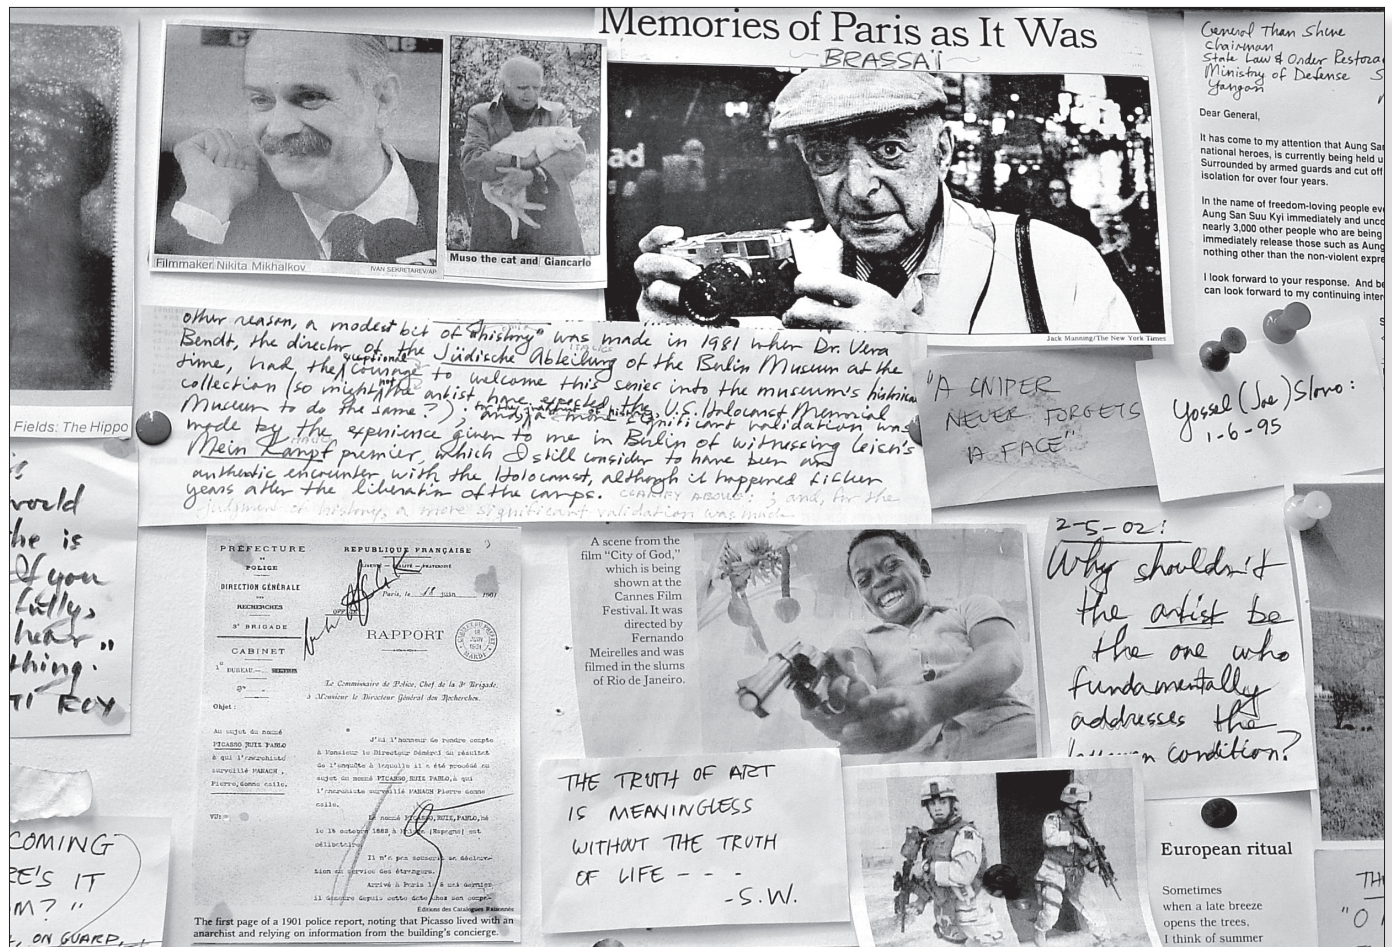 Memories of Paris as It Was
BRASSAÏ
Jack Manning/The New York Times
Filmmaker Nikita Mikhalkov
IVAN SEKRETAREV/AP
Muso the cat and Giancarlo
General Than Shwe
Chairman
State Law & Order Restora
Ministry of Defense S
Yangon
Dear General,
It has come to my attention that Aung Sa
national heroes, is currently being held u
Surrounded by armed guards and cut off
isolation for over four years.
In the name of freedom-loving people eve
Aung San Suu Kyi immediately and unco
nearly 3,000 other people who are being
immediately release those such as Aung
nothing other than the non-violent expre
I look forward to your response. And be
can look forward to my continuing inter
Fields: The Hippo
other reason, a modest bit of "history" was made in 1981 when Dr. Vera
Bendt, the director of the Jüdische Abteilung of the Berlin Museum at the
time, had the exceptional courage to welcome this series into the museum's historical
collection (so might not the artist have expected the U.S. Holocaust Memorial
Museum to do the same?); and a more significant validation was
made by the experience given to me in Berlin of witnessing
Mein Kampf premier, which I still consider to have been an
authentic encounter with the Holocaust, although it happened
years after the liberation of the camps. CLARIFY ABOVE: ; and, for the
judgment of history, a more significant validation was made
"A SNIPER
NEVER FORGETS
A FACE"
Yossel (Joe) Slovo:
1-6-95
world
he is
If you
fully,
hear"
thing.
TI ROY
PRÉFECTURE
DE
POLICE
DIRECTION GÉNÉRALE
DES
RECHERCHES
3e BRIGADE
CABINET
1er BUREAU.
Objet:
Au sujet du nommé
PICASSO RUIZ PABLO
à qui l'anarchiste
surveillé MANACH,
Pierre, donne asile.
RÉPUBLIQUE FRANÇAISE
LIBERTÉ — ÉGALITÉ — FRATERNITÉ
Paris, le 18 juin 1901
RAPPORT
Le Commissaire de Police, Chef de la 3e Brigade,
à Monsieur le Directeur Général des Recherches.
J'ai l'honneur de rendre compte
à Monsieur le Directeur Général du résultat
de l'enquête à laquelle il a été procédé au
sujet du nommé PICASSO, RUIZ PABLO, à qui
l'anarchiste surveillé MANACH Pierre donne
asile.
Le nommé PICASSO, RUIZ, PABLO, né
(Espagne) est
célibataire.
Il n'a pas souscrit sa déclara-
tion au service des étrangers.
Arrivé à Paris le 5 mai dernier
il demeure depuis cette date chez son
Éditions des Catalogues Raisonnés
The first page of a 1901 police report, noting that Picasso lived with an
anarchist and relying on information from the building's concierge.
A scene from the
film "City of God,"
which is being
shown at the
Cannes Film
Festival. It was
directed by
Fernando
Meirelles and was
filmed in the slums
of Rio de Janeiro.
2-5-02:
Why shouldn't
the artist be
the one who
fundamentally
addresses the
condition?
THE TRUTH OF ART
IS MEANINGLESS
WITHOUT THE TRUTH
OF LIFE - - -
-S.W.
European ritual
Sometimes
when a late breeze
opens the trees,
I think of summer
COMING
RE'S IT
M?"
, ON GUARD,
TH
"O